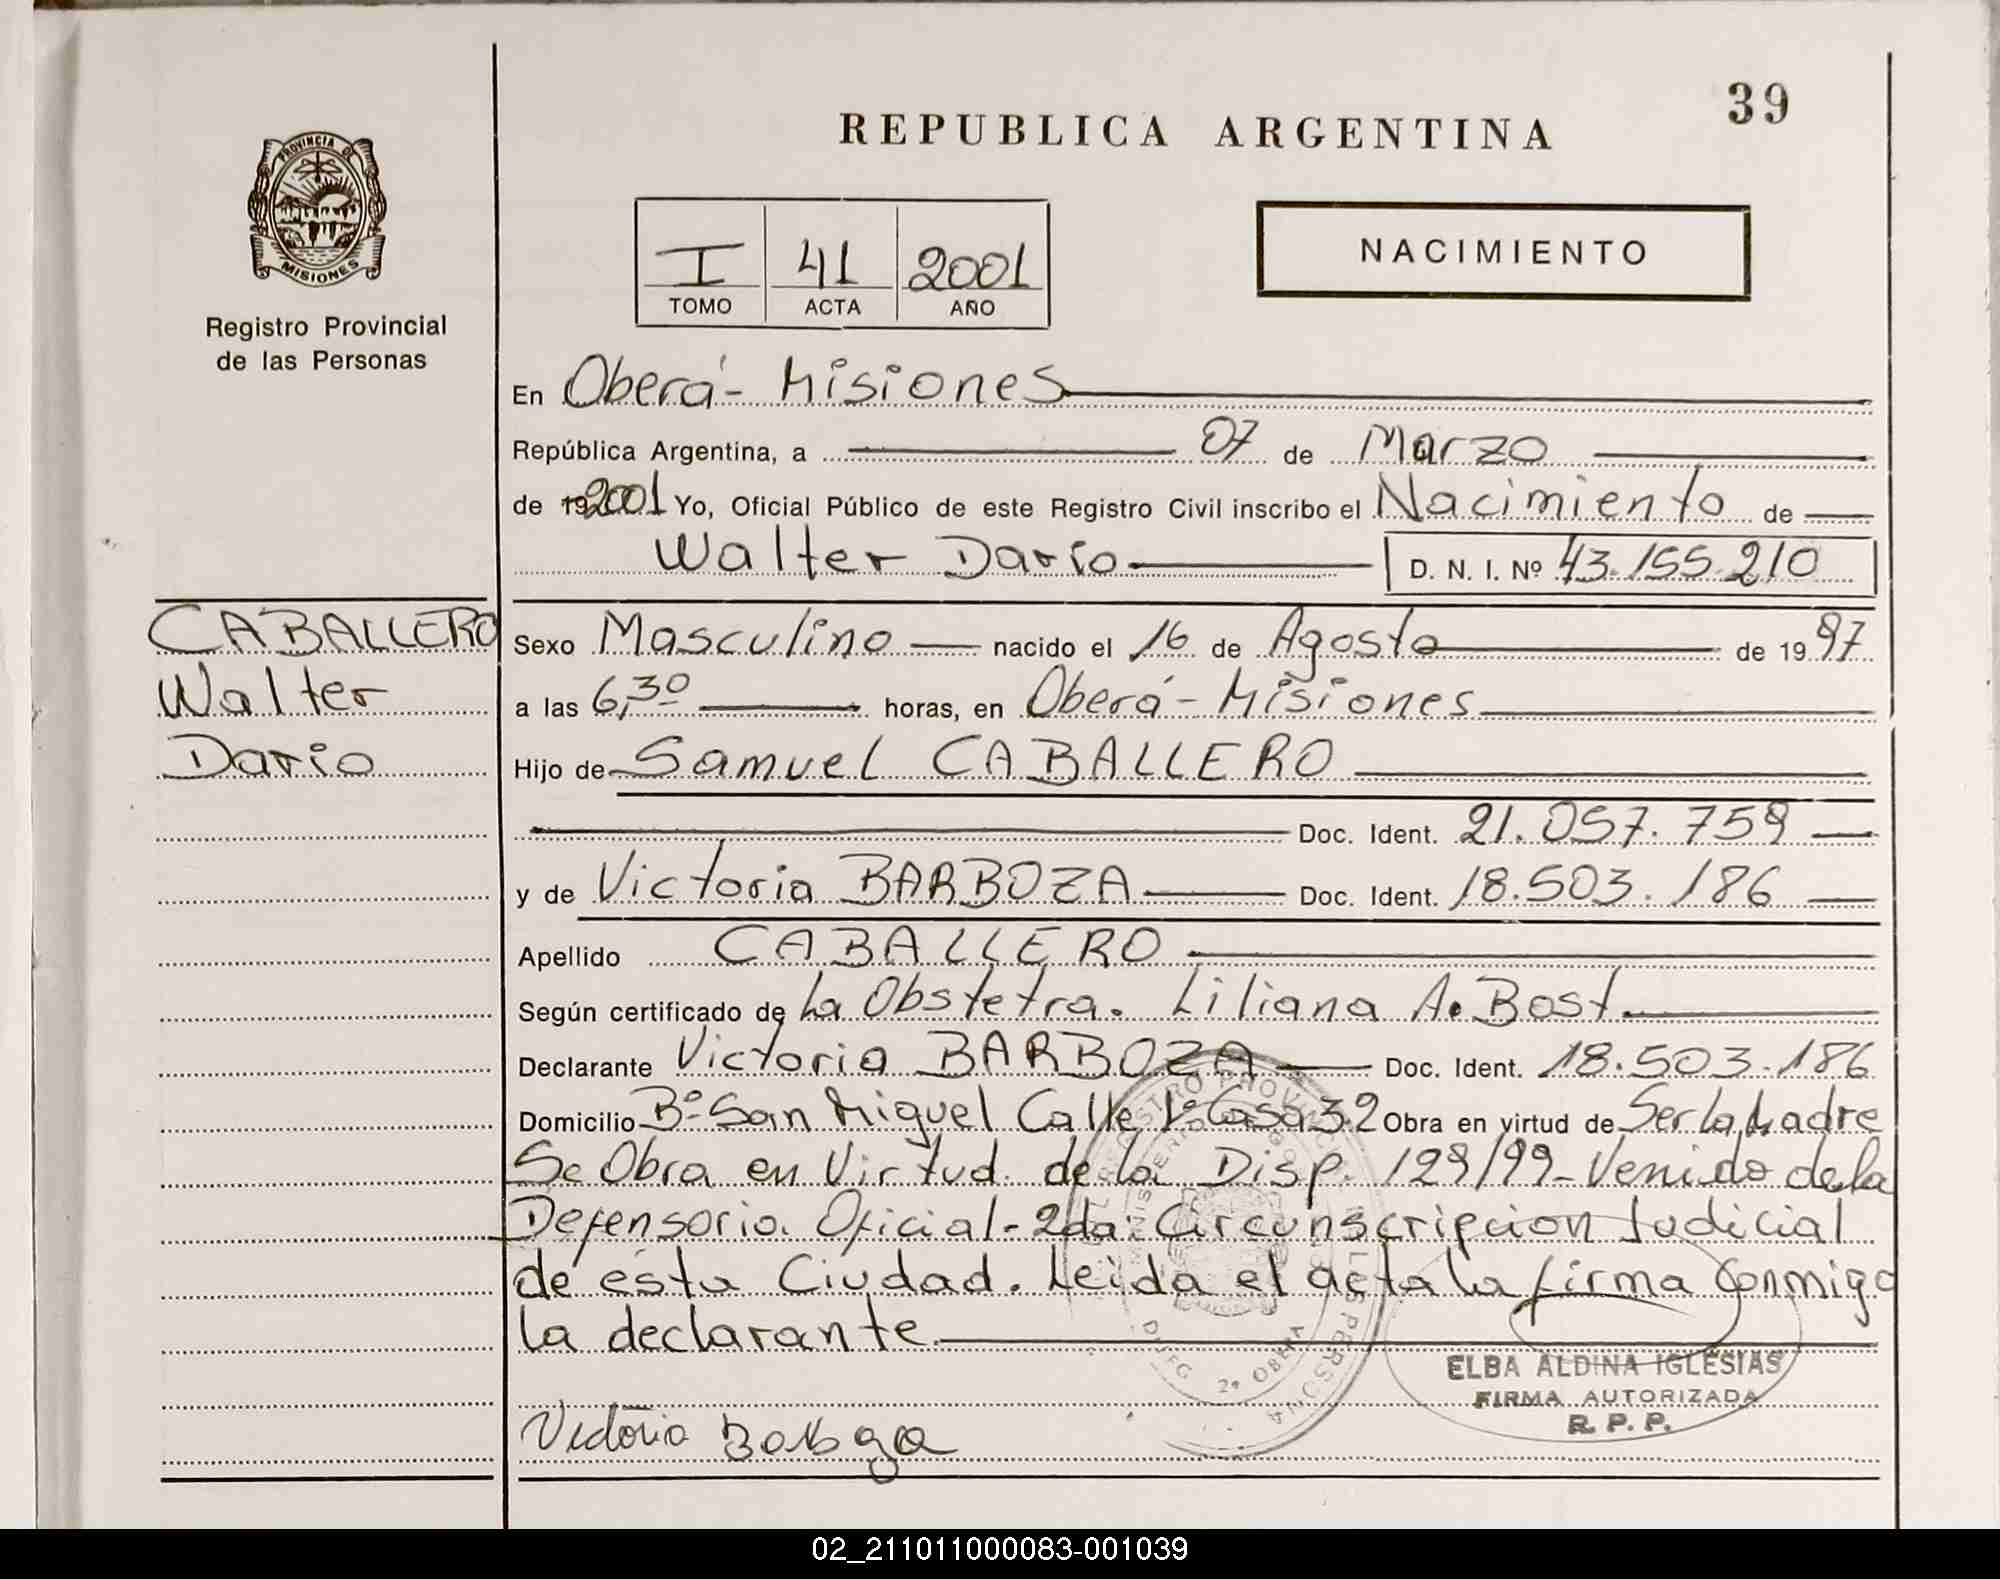 39
REPUBLICA ARGENTINA
PROVINCIA DE
MISIONES
Registro Provincial
de las Personas
I 41 2001
TOMO ACTA AÑO
NACIMIENTO
En Oberá - Misiones
República Argentina, a 07 de Marzo
de 192001 Yo, Oficial Público de este Registro Civil inscribo el Nacimiento de
Walter Dario D. N. I. Nº 43.155.210
CABALLERO
Walter
Dario
Sexo Masculino nacido el 16 de Agosto de 1997
a las 6,30 horas, en Oberá - Misiones
Hijo de Samuel CABALLERO
Doc. Ident. 21.057.759
y de Victoria BARBOZA Doc. Ident. 18.503.186
Apellido CABALLERO
Según certificado de La Obstetra. Liliana A. Bost
Declarante Victoria BARBOZA Doc. Ident. 18.503.186
Domicilio Bº San Miguel Calle 1º Casa 32 Obra en virtud de Ser la Madre
Se Obra en Virtud de la Disp. 129/99 - Venido de la
Defensoria Oficial - 2da: Circunscripcion Judicial
de ésta Ciudad. Leida el acta la firma conmigo
la declarante
ELBA ALDINA IGLESIAS
FIRMA AUTORIZADA
R. P. P.
Victoria
02_211011000083-001039